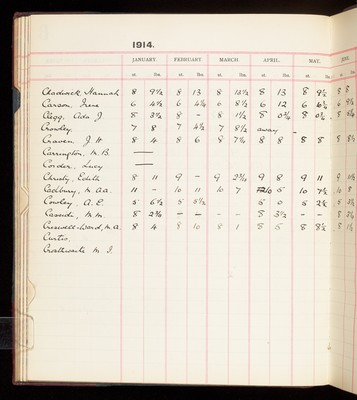 1914.
JANUARY. FEBRUARY MARCH APRIL. MAY.
st. lbs. st. lbs. st. lbs. st. lbs. st. lbs. st.
Chadwick Hannah 8 9½ 8 13 8 13½ 8 13 8 9½ 8 8
Carson, Irene 6 4½ 6 4¼ 6 8½ 6 12 6 6½ 6 9½
Clegg, Ada J. 8 3½ 8 - 8 1½ 8 0¾ 8 0½ 8
Crowley. 7 8 7 4½ 7 8½ away -
Craven J. H 8 4 8 6 8 7¾ 8 8 8 8 8
Carrington, M. B. —
Corder, Lucy —
Christy, Edith 8 11 9 - 9 9 8 9 11 9
Cadbury, M. a.a. 11 - 10 11 10 7 10 5 10 7½ 10 8
Cowley, A. E. 5 6½ 5 5½ 5 0 5 2¼ 5
Cassidi, M. M. 8 2¾ - - - - 8 3½ - - 8
Cresswell-Ward, M. a. 8 4 8 10 8 1 8 5 8 8½ 8
Curtis.
Crosthwaite M. J.